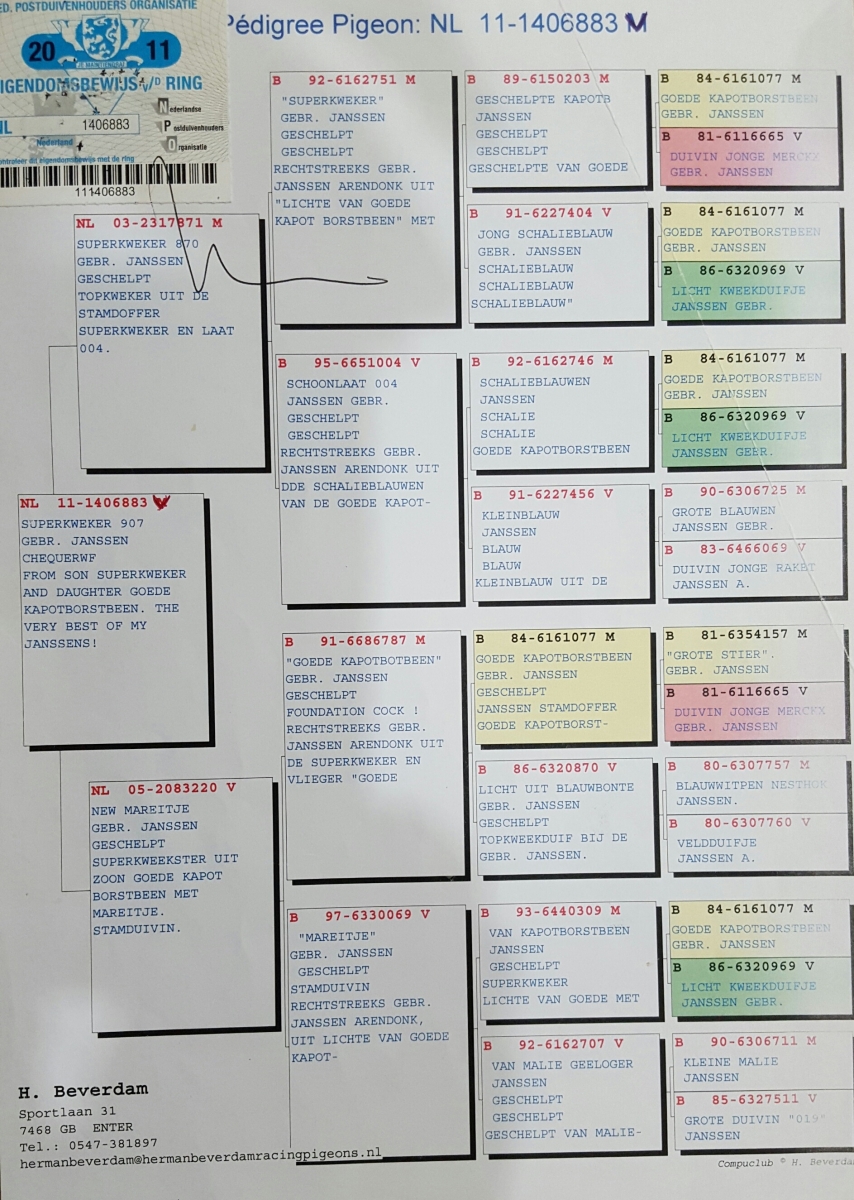 ED. POSTDUIVENHOUDERS ORGANISATIE
20 11
JE MAINTIENDRAI
IGENDOMSBEWIJS v/D RING
NL 1406883
Nederland
Nederlandse
Postduivenhouders
Organisatie
ontroleer dit eigendomsbewijs met de ring
111406883
Pédigree Pigeon: NL 11-1406883 M
NL 11-1406883
SUPERKWEKER 907
GEBR. JANSSEN
CHEQUERWF
FROM SON SUPERKWEKER
AND DAUGHTER GOEDE
KAPOTBORSTBEEN. THE
VERY BEST OF MY
JANSSENS!
NL 03-2317871 M
SUPERKWEKER 870
GEBR. JANSSEN
GESCHELPT
TOPKWEKER UIT DE
STAMDOFFER
SUPERKWEKER EN LAAT
004.
NL 05-2083220 V
NEW MAREITJE
GEBR. JANSSEN
GESCHELPT
SUPERKWEEKSTER UIT
ZOON GOEDE KAPOT
BORSTBEEN MET
MAREITJE.
STAMDUIVIN.
B 92-6162751 M
"SUPERKWEKER"
GEBR. JANSSEN
GESCHELPT
GESCHELPT
RECHTSTREEKS GEBR.
JANSSEN ARENDONK UIT
"LICHTE VAN GOEDE
KAPOT BORSTBEEN" MET
B 95-6651004 V
SCHOONLAAT 004
JANSSEN GEBR.
GESCHELPT
GESCHELPT
RECHTSTREEKS GEBR.
JANSSEN ARENDONK UIT
DDE SCHALIEBLAUWEN
VAN DE GOEDE KAPOT-
B 91-6686787 M
"GOEDE KAPOTBOTBEEN"
GEBR. JANSSEN
GESCHELPT
FOUNDATION COCK !
RECHTSTREEKS GEBR.
JANSSEN ARENDONK UIT
DE SUPERKWEKER EN
VLIEGER "GOEDE
B 97-6330069 V
"MAREITJE"
GEBR. JANSSEN
GESCHELPT
STAMDUIVIN
RECHTSTREEKS GEBR.
JANSSEN ARENDONK,
UIT LICHTE VAN GOEDE
KAPOT-
B 89-6150203 M
GESCHELPTE KAPOTB
JANSSEN
GESCHELPT
GESCHELPT
GESCHELPTE VAN GOEDE
B 91-6227404 V
JONG SCHALIEBLAUW
GEBR. JANSSEN
SCHALIEBLAUW
SCHALIEBLAUW
SCHALIEBLAUW"
B 92-6162746 M
SCHALIEBLAUWEN
JANSSEN
SCHALIE
SCHALIE
GOEDE KAPOTBORSTBEEN
B 91-6227456 V
KLEINBLAUW
JANSSEN
BLAUW
BLAUW
KLEINBLAUW UIT DE
B 84-6161077 M
GOEDE KAPOTBORSTBEEN
GEBR. JANSSEN
GESCHELPT
JANSSEN STAMDOFFER
GOEDE KAPOTBORST-
B 86-6320870 V
LICHT UIT BLAUWBONTE
GEBR. JANSSEN
GESCHELPT
TOPKWEEKDUIF BIJ DE
GEBR. JANSSEN.
B 93-6440309 M
VAN KAPOTBORSTBEEN
JANSSEN
GESCHELPT
SUPERKWEKER
LICHTE VAN GOEDE MET
B 92-6162707 V
VAN MALIE GEELOGER
JANSSEN
GESCHELPT
GESCHELPT
GESCHELPT VAN MALIE-
B 84-6161077 M
GOEDE KAPOTBORSTBEEN
GEBR. JANSSEN
B 81-6116665 V
DUIVIN JONGE MERCKX
GEBR. JANSSEN
B 84-6161077 M
GOEDE KAPOTBORSTBEEN
GEBR. JANSSEN
B 86-6320969 V
LICHT KWEEKDUIFJE
JANSSEN GEBR.
B 84-6161077 M
GOEDE KAPOTBORSTBEEN
GEBR. JANSSEN
B 86-6320969 V
LICHT KWEEKDUIFJE
JANSSEN GEBR.
B 90-6306725 M
GROTE BLAUWEN
JANSSEN GEBR.
B 83-6466069 V
DUIVIN JONGE RAKET
JANSSEN A.
B 81-6354157 M
"GROTE STIER".
GEBR. JANSSEN
B 81-6116665 V
DUIVIN JONGE MERCKX
GEBR. JANSSEN
B 80-6307757 M
BLAUWWITPEN NESTHOK
JANSSEN.
B 80-6307760 V
VELDDUIFJE
JANSSEN A.
B 84-6161077 M
GOEDE KAPOTBORSTBEEN
GEBR. JANSSEN
B 86-6320969 V
LICHT KWEEKDUIFJE
JANSSEN GEBR.
B 90-6306711 M
KLEINE MALIE
JANSSEN
B 85-6327511 V
GROTE DUIVIN "019"
JANSSEN
H. Beverdam
Sportlaan 31
7468 GB ENTER
Tel.: 0547-381897
hermanbeverdam@hermanbeverdamracingpigeons.nl
Compuclub © H. Beverda